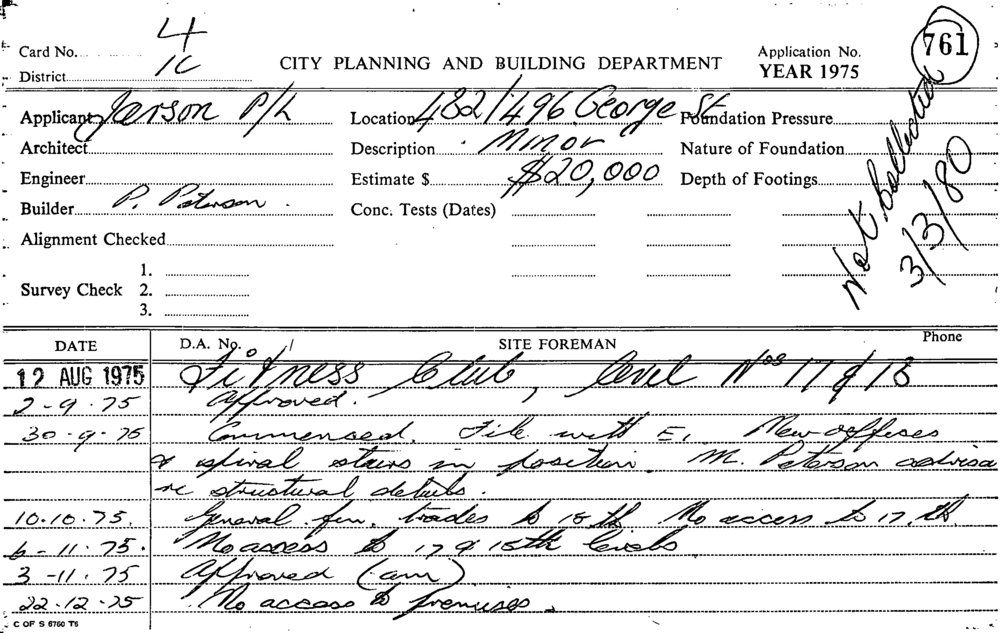 Card No. 4
District 1C
CITY PLANNING AND BUILDING DEPARTMENT
Application No. 761
YEAR 1975
Applicant Jarson P/L
Location 482/496 George St
Foundation Pressure
Architect
Description Minor
Nature of Foundation
Engineer
Estimate $ $20,000
Depth of Footings
Builder P. Paterson
Conc. Tests (Dates)
Not Collected
3/3/80
Alignment Checked
Survey Check
1.
2.
3.
DATE D.A. No. SITE FOREMAN Phone
12 AUG 1975 Fitness Club, Level Nos 17 & 18
2-9-75 Approved.
30-9-75 Commensed. File with E. New offices
& spiral stairs in position. M. Peterson advised
re structural details.
10.10.75. General trades to 18th. No access to 17th.
6-11-75. No access to 17 & 18th levels
3-11-75 Approved (am)
22.12.75 No access to premises.
C OF S 6760 T6